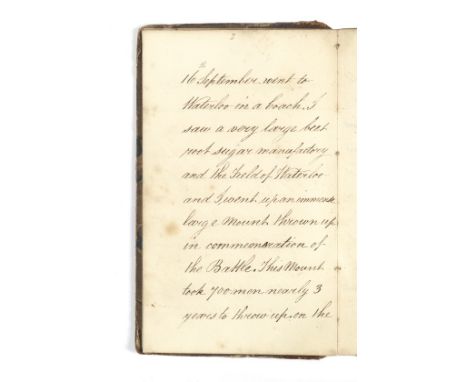 2
th
16 September went to
Waterloo in a Coach. I
saw a very large beet
root sugar manufactory
and the Field of Waterloo
and I went up an immense
large Mount thrown up
in commemoration of
the Battle. This Mount
took 700 men nearly 3
years to throw up. on the